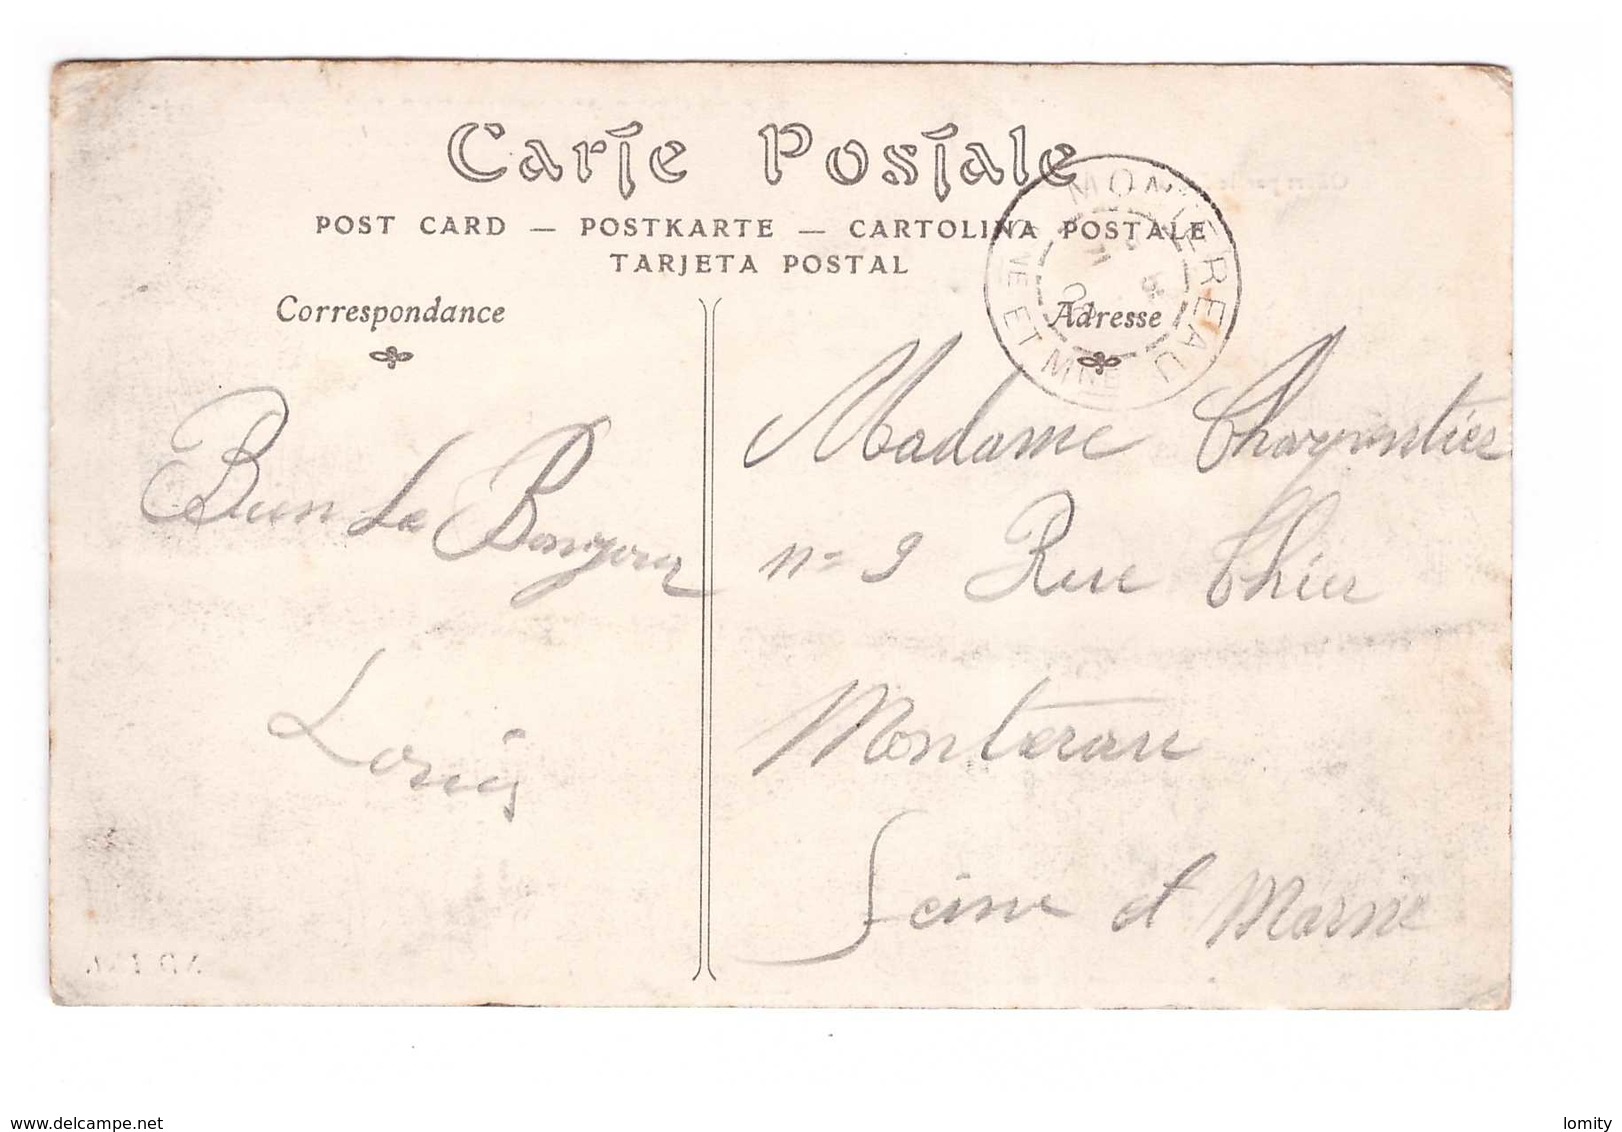 Carte Postale
POST CARD — POSTKARTE — CARTOLINA POSTALE
TARJETA POSTAL
MONTEREAU
NE ET MNE
Correspondance
Adresse
Bien Le Bonjour
Louis
Madame Charpentier
n= 9 Rue Thier
Monterau
Seine et Marne
www.delcampe.net
lomity